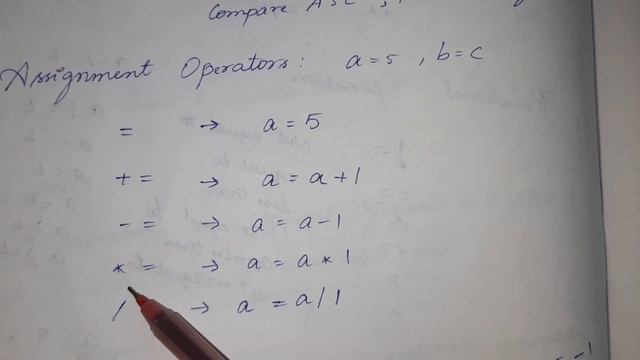 Compare
Assignment Operators: a = 5 , b = c
= → a = 5
+ = → a = a + 1
- = → a = a - 1
* = → a = a * 1
/ → a = a / 1
- 1